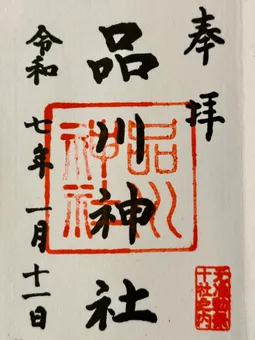 奉拝
品川神社
品川神社
令和七年一月十一日